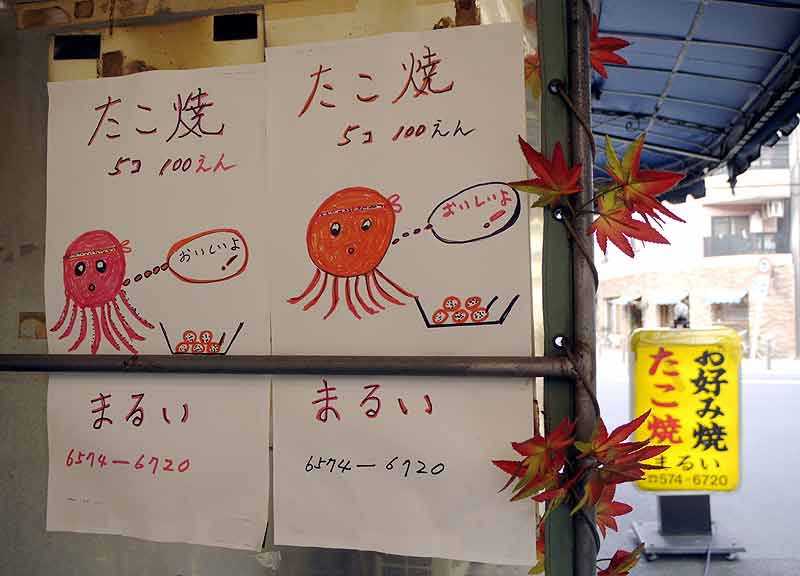 たこ焼
5コ 100えん
おいしいよ!
まるい
6574-6720
たこ焼
5コ 100えん
おいしいよ!
まるい
6574-6720
お好み焼
たこ焼
まるい
☎574-6720